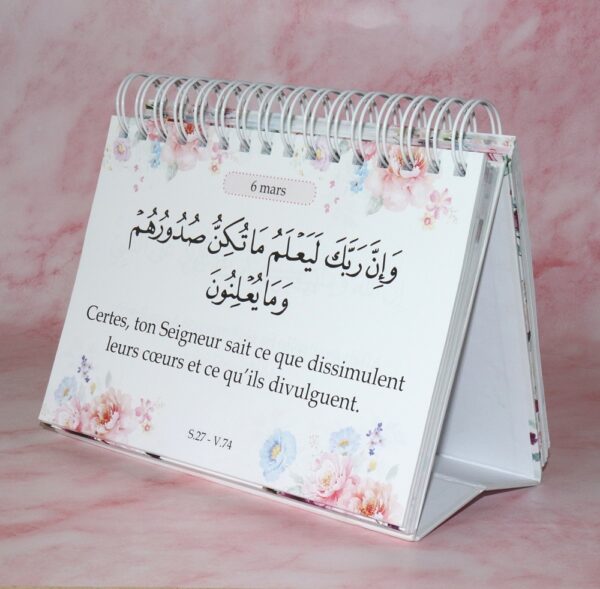 6 mars
وَإِنَّ رَبَّكَ لَيَعْلَمُ مَا تُكِنُّ صُدُورُهُمْ
وَمَا يُعْلِنُونَ
Certes, ton Seigneur sait ce que dissimulent
leurs cœurs et ce qu'ils divulguent.
S.27 - V.74